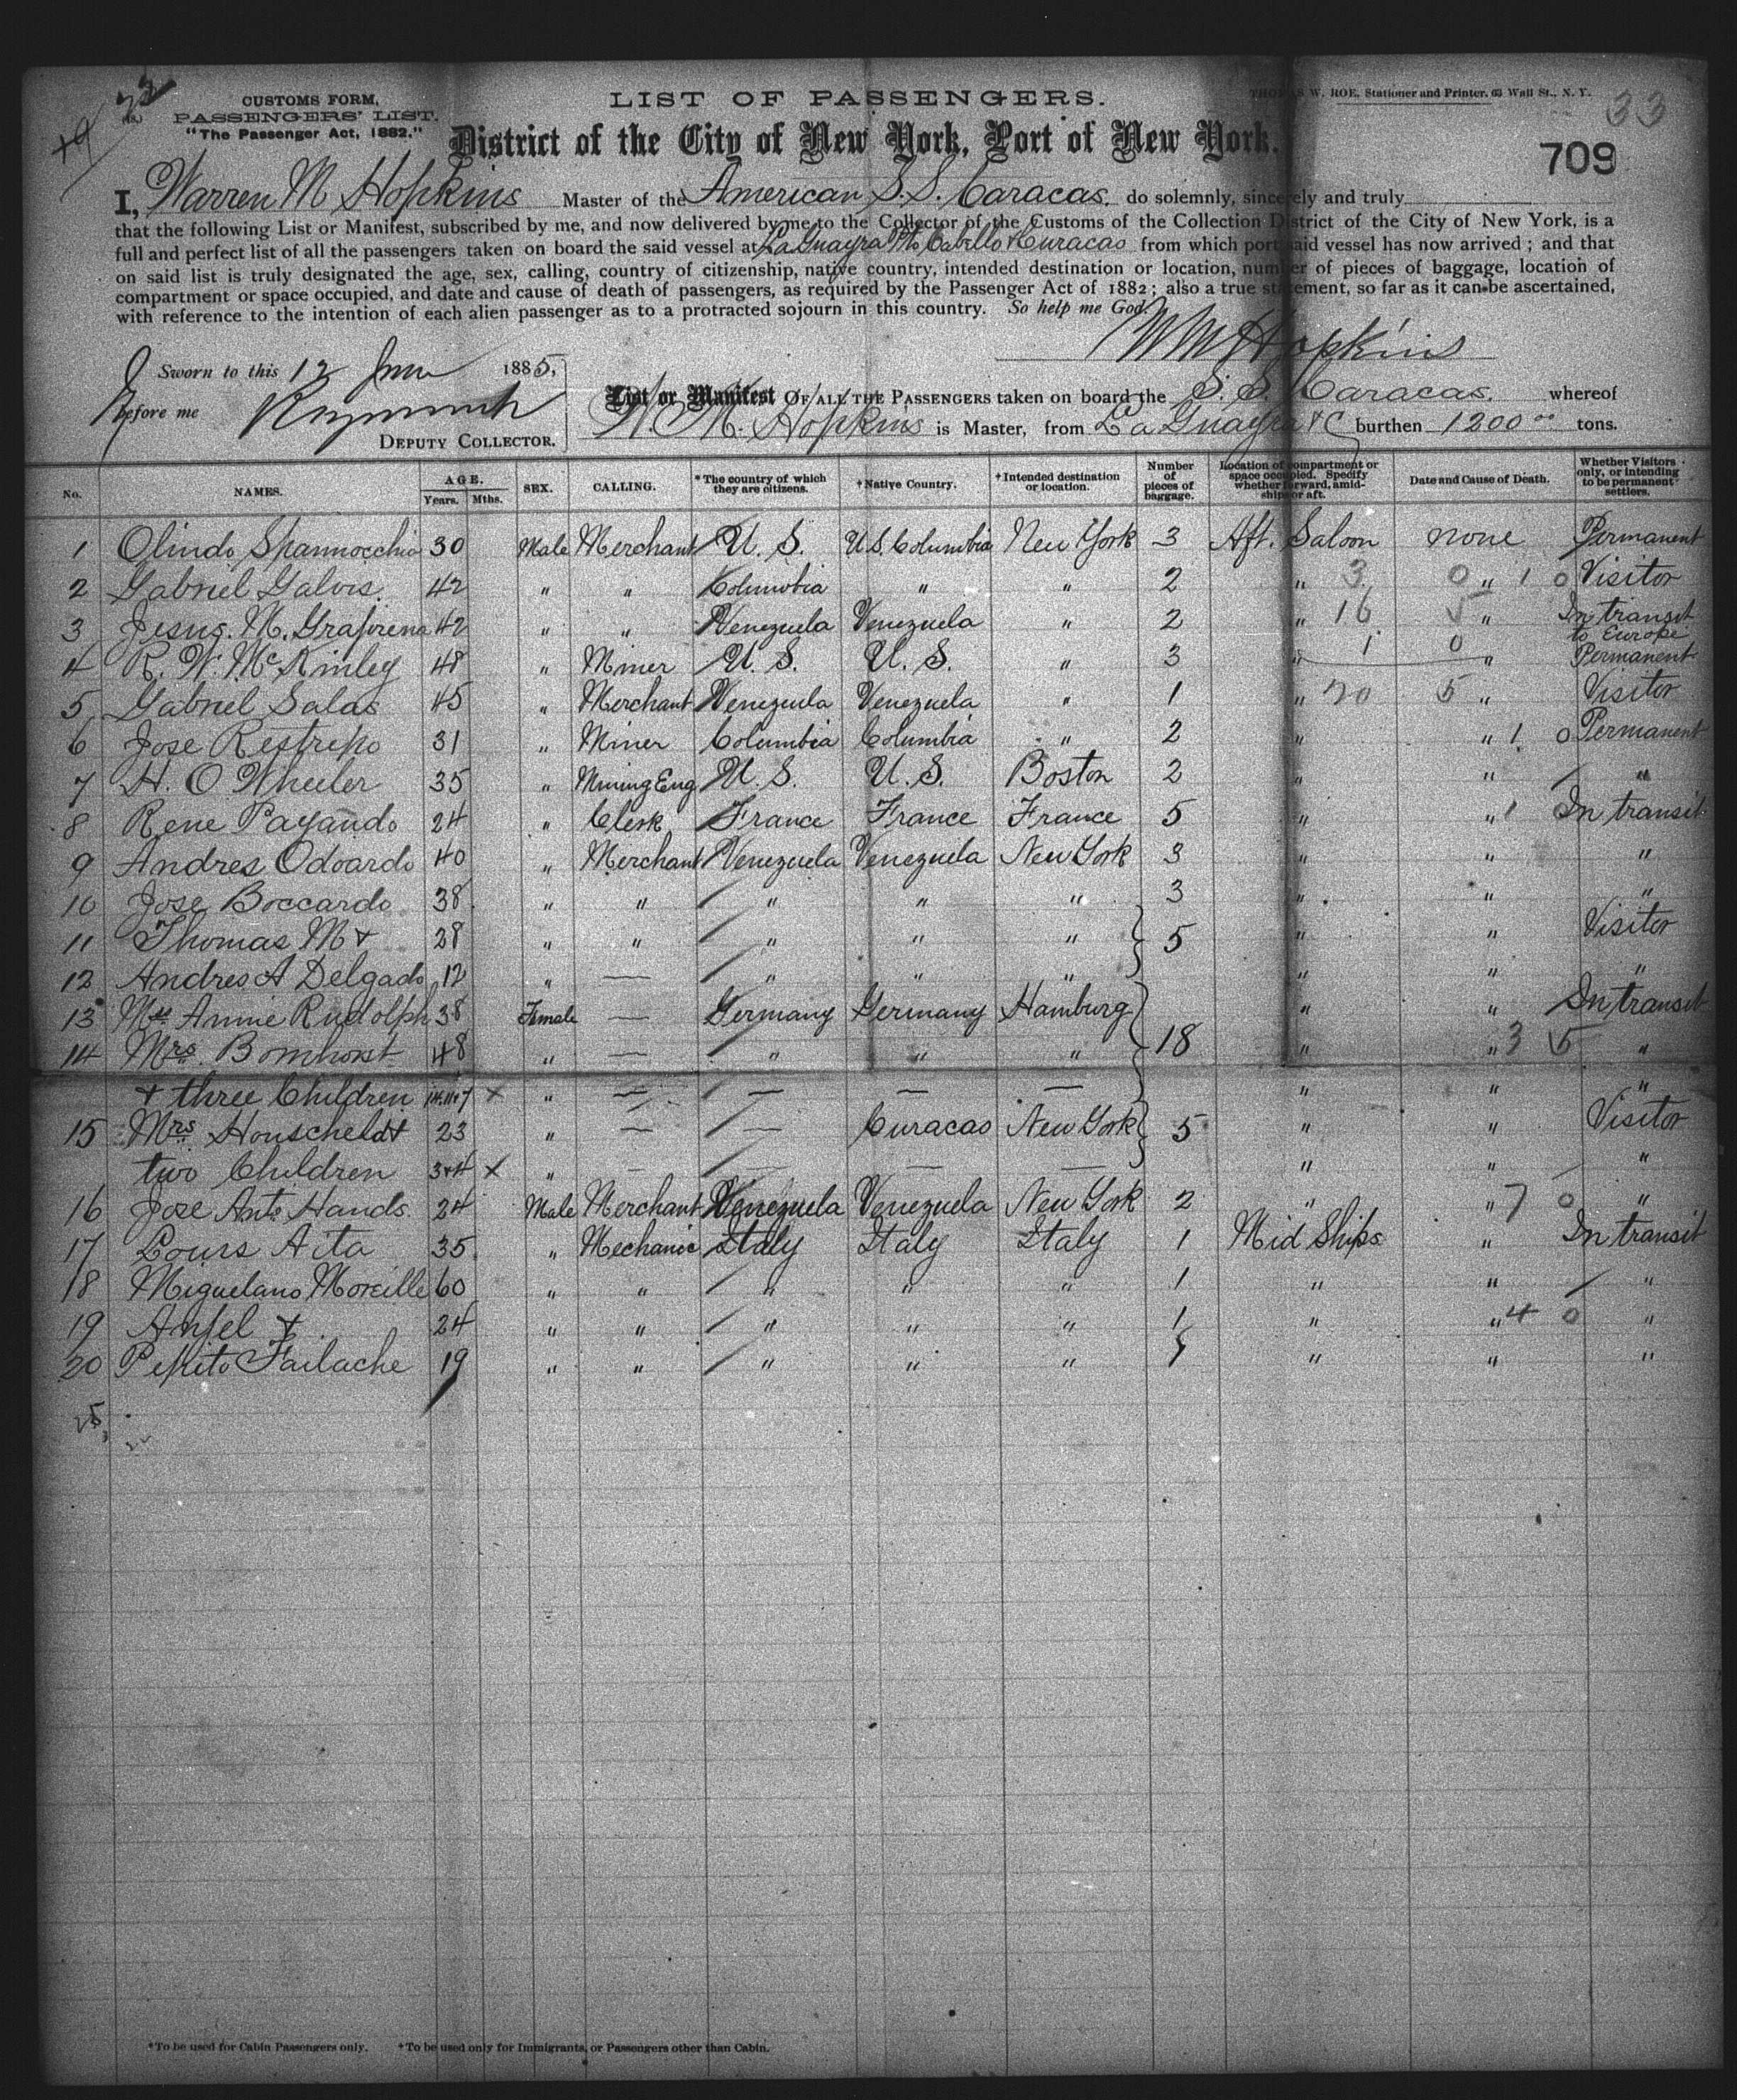 33
CUSTOMS FORM,
PASSENGERS' LIST.
"The Passenger Act, 1882."
LIST OF PASSENGERS.
THOMAS W. ROE, Stationer and Printer, 63 Wall St., N. Y.
District of the City of New York, Port of New York.
709
I, Warren M Hopkins Master of the American S.S. Caracas. do solemnly, sincerely and truly
that the following List or Manifest, subscribed by me, and now delivered by me to the Collector of the Customs of the Collection District of the City of New York, is a
full and perfect list of all the passengers taken on board the said vessel at La Guayra Pto Cabello & Curacao from which port said vessel has now arrived; and that
on said list is truly designated the age, sex, calling, country of citizenship, native country, intended destination or location, number of pieces of baggage, location of
compartment or space occupied, and date and cause of death of passengers, as required by the Passenger Act of 1882; also a true statement, so far as it can be ascertained,
with reference to the intention of each alien passenger as to a protracted sojourn in this country. So help me God.
W M Hopkins
Sworn to this 12 June 1885,
before me
DEPUTY COLLECTOR.
List or Manifest OF ALL THE PASSENGERS taken on board the S. S. Caracas. whereof
W. M. Hopkins is Master, from La Guayra & C burthen 1200 00 tons.
No. NAMES. AGE. Years. Mths. SEX. CALLING. *The country of which they are citizens. †Native Country. †Intended destination or location. Number of pieces of baggage. Location of compartment or space occupied. Specify whether forward, amidships or aft. Date and Cause of Death. Whether Visitors only, or intending to be permanent settlers.
1 Olindo Spannocchia 30 Male Merchant U. S. U.S. Columbia New York 3 Aft. Saloon none Permanent
2 Gabriel Galvis 42 " " Columbia " " 2 " 3 0 " 1 0 Visitor
3 Jesus. M. 42 " " Venezuela Venezuela " 2 " 16 5 " In transit to Europe
4 R. W. McKinley 48 " Miner U. S. U. S. " 3 " 1 0 " Permanent
5 Gabriel Salas 45 " Merchant Venezuela Venezuela " 1 " 20 5 " Visitor
6 Jose Restrepo 31 " Miner Columbia Columbia " 2 " " 1 0 Permanent
7 H. O. Wheeler 35 " Mining Eng U. S. U. S. Boston 2 " " "
8 Rene Payando 24 " Clerk France France France 5 " " 1 In transit
9 Andres Odoardo 40 " Merchant Venezuela Venezuela New York 3 " " "
10 Jose Boccardo 38 " " " " " 3 " " "
11 Thomas M & 28 " " " " " 5 " " Visitor
12 Andres A Delgado 12 " — " " " " " "
13 Mrs Annie Rudolph 38 Female — Germany Germany Hamburg " " In transit
14 Mrs. Bornhorst 48 " — " " " 18 " " 3 5 "
& three Children 14.11&7 x " — — — — " " "
15 Mrs Houscheldt 23 " — — Curacao New York 5 " " Visitor
two Children 3&4 x " — — — — " " "
16 Jose Anto Hands. 24 Male Merchant Venezuela Venezuela New York 2 " " 7 0 "
17 Louis Aita 35 " Mechanic Italy Italy Italy 1 Mid Ships " In transit
18 Miguelano Moreille 60 " " " " " 1 " " "
19 Ansel & 24 " " " " " 1 " " 4 0 "
20 Pepito Failache 19 " " " " " " " "
25
*To be used for Cabin Passengers only. †To be used only for Immigrants, or Passengers other than Cabin.